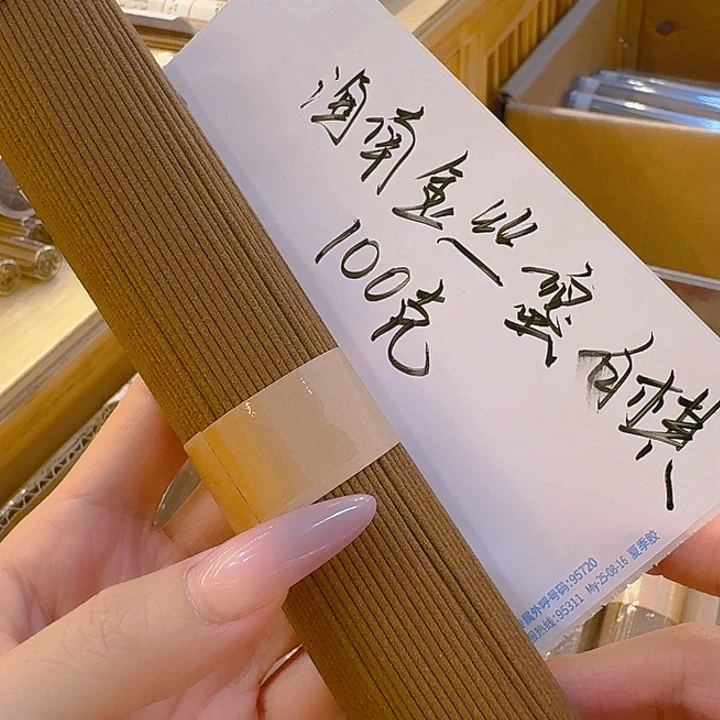 海南金丝蜜白棋
100克
属外呼号码:95720
服热线:95311 My-25-08-16 夏季胶